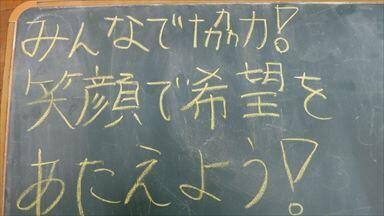 みんなで協力!
笑顔で希望を
あたえよう!